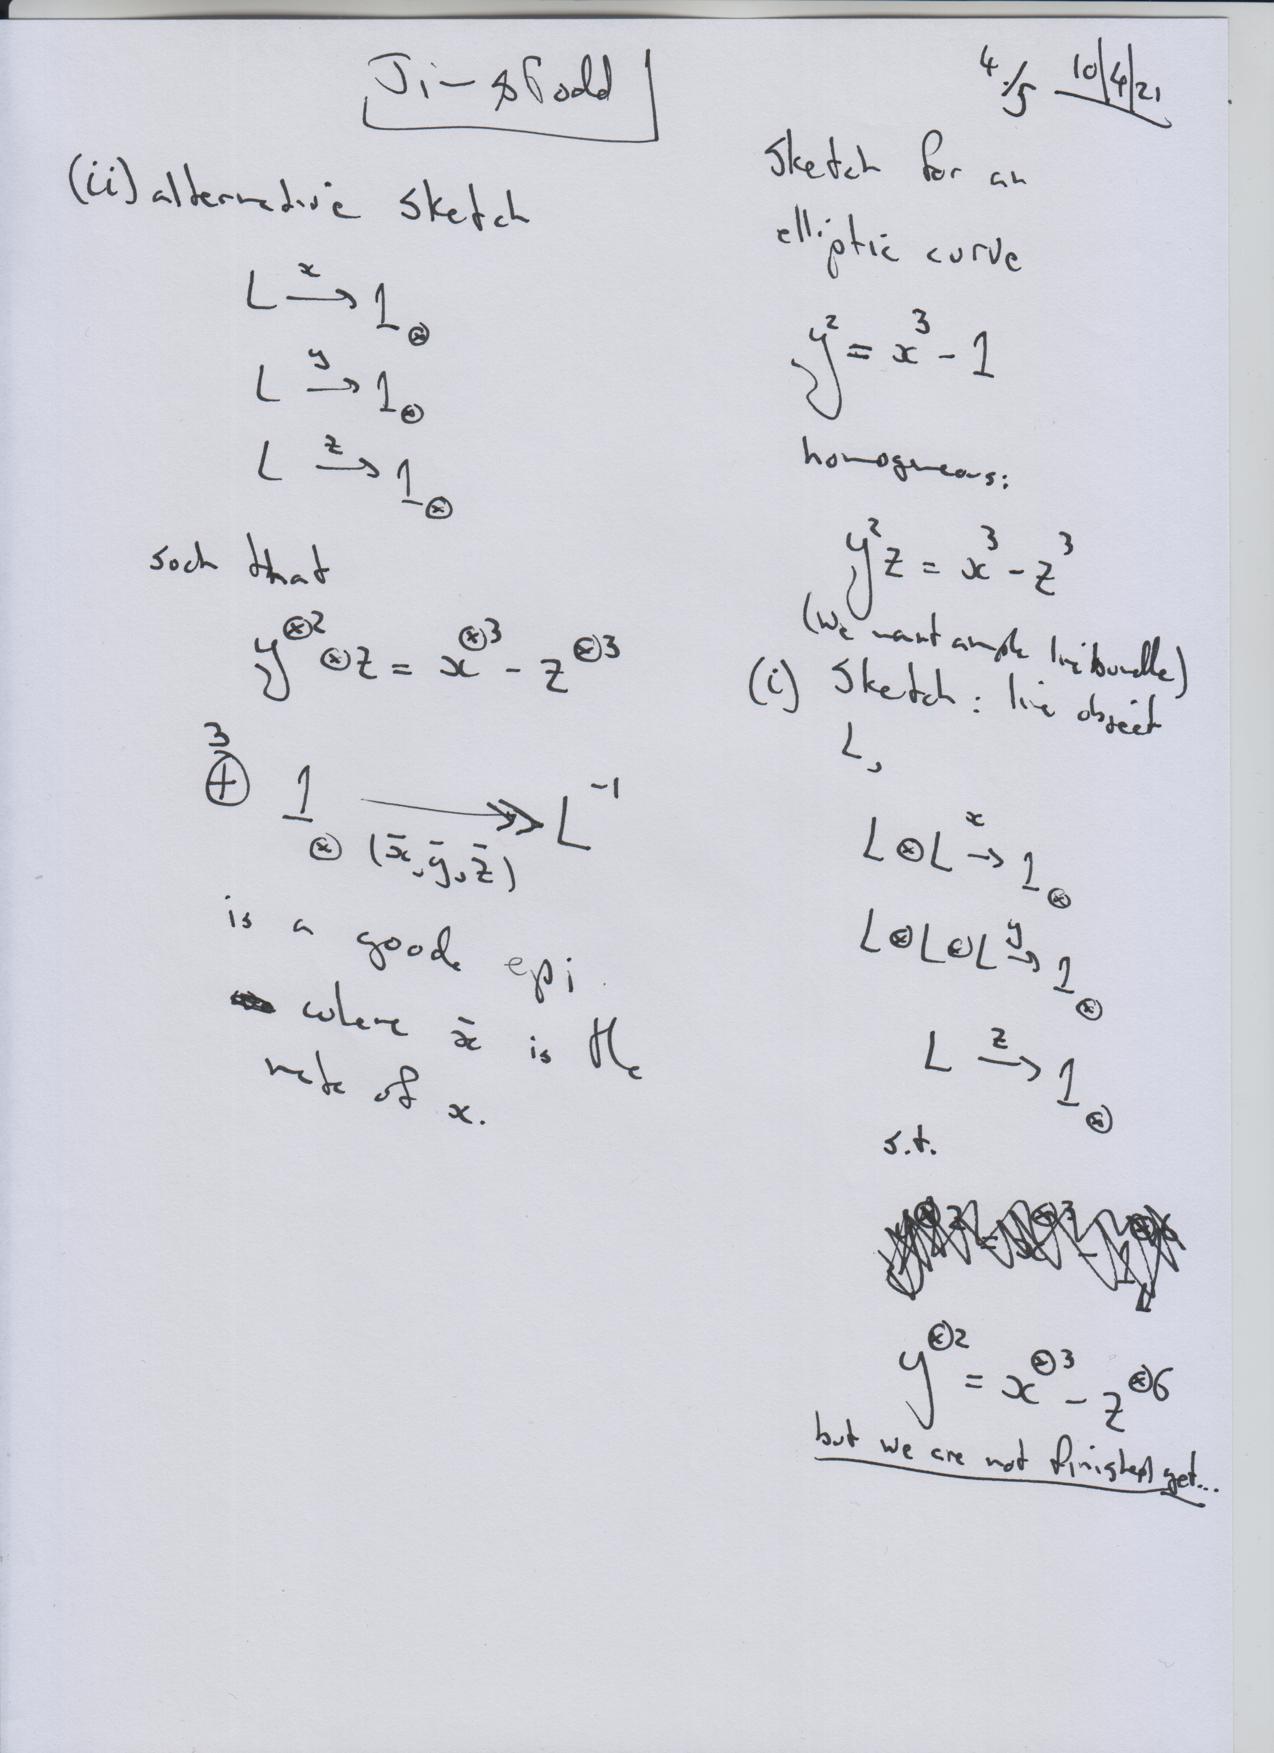 4/5 10/4/21
(ii) alternative sketch
L x→ 1⊗
L y→ 1⊗
L z→ 1⊗
such that
y⊗2 ⊗ z = x⊗3 - z⊗3
3
⊕ 1⊗ ↠ L-1
(x̄, ȳ, z̄)
is a good epi.
where x̄ is the
mate of x.
Sketch for an
elliptic curve
y² = x³ - 1
homogeneous:
y²z = x³ - z³
(we want ample line bundle)
(i) Sketch: line object
L,
L⊗L x→ 1⊗
L⊗L⊗L y→ 1⊗
L z→ 1⊗
s.t.
y⊗2 = x⊗3 - z⊗6
but we are not finished yet...